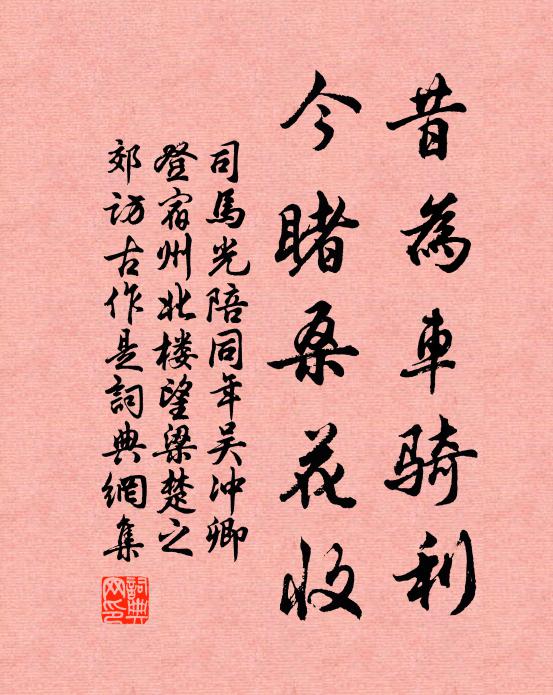 昔為車骑利
今睹桑花收
司馬光陪同年吴冲卿
登宿州北楼望梁楚之
郊访古作是詞典網集
詞典
网印